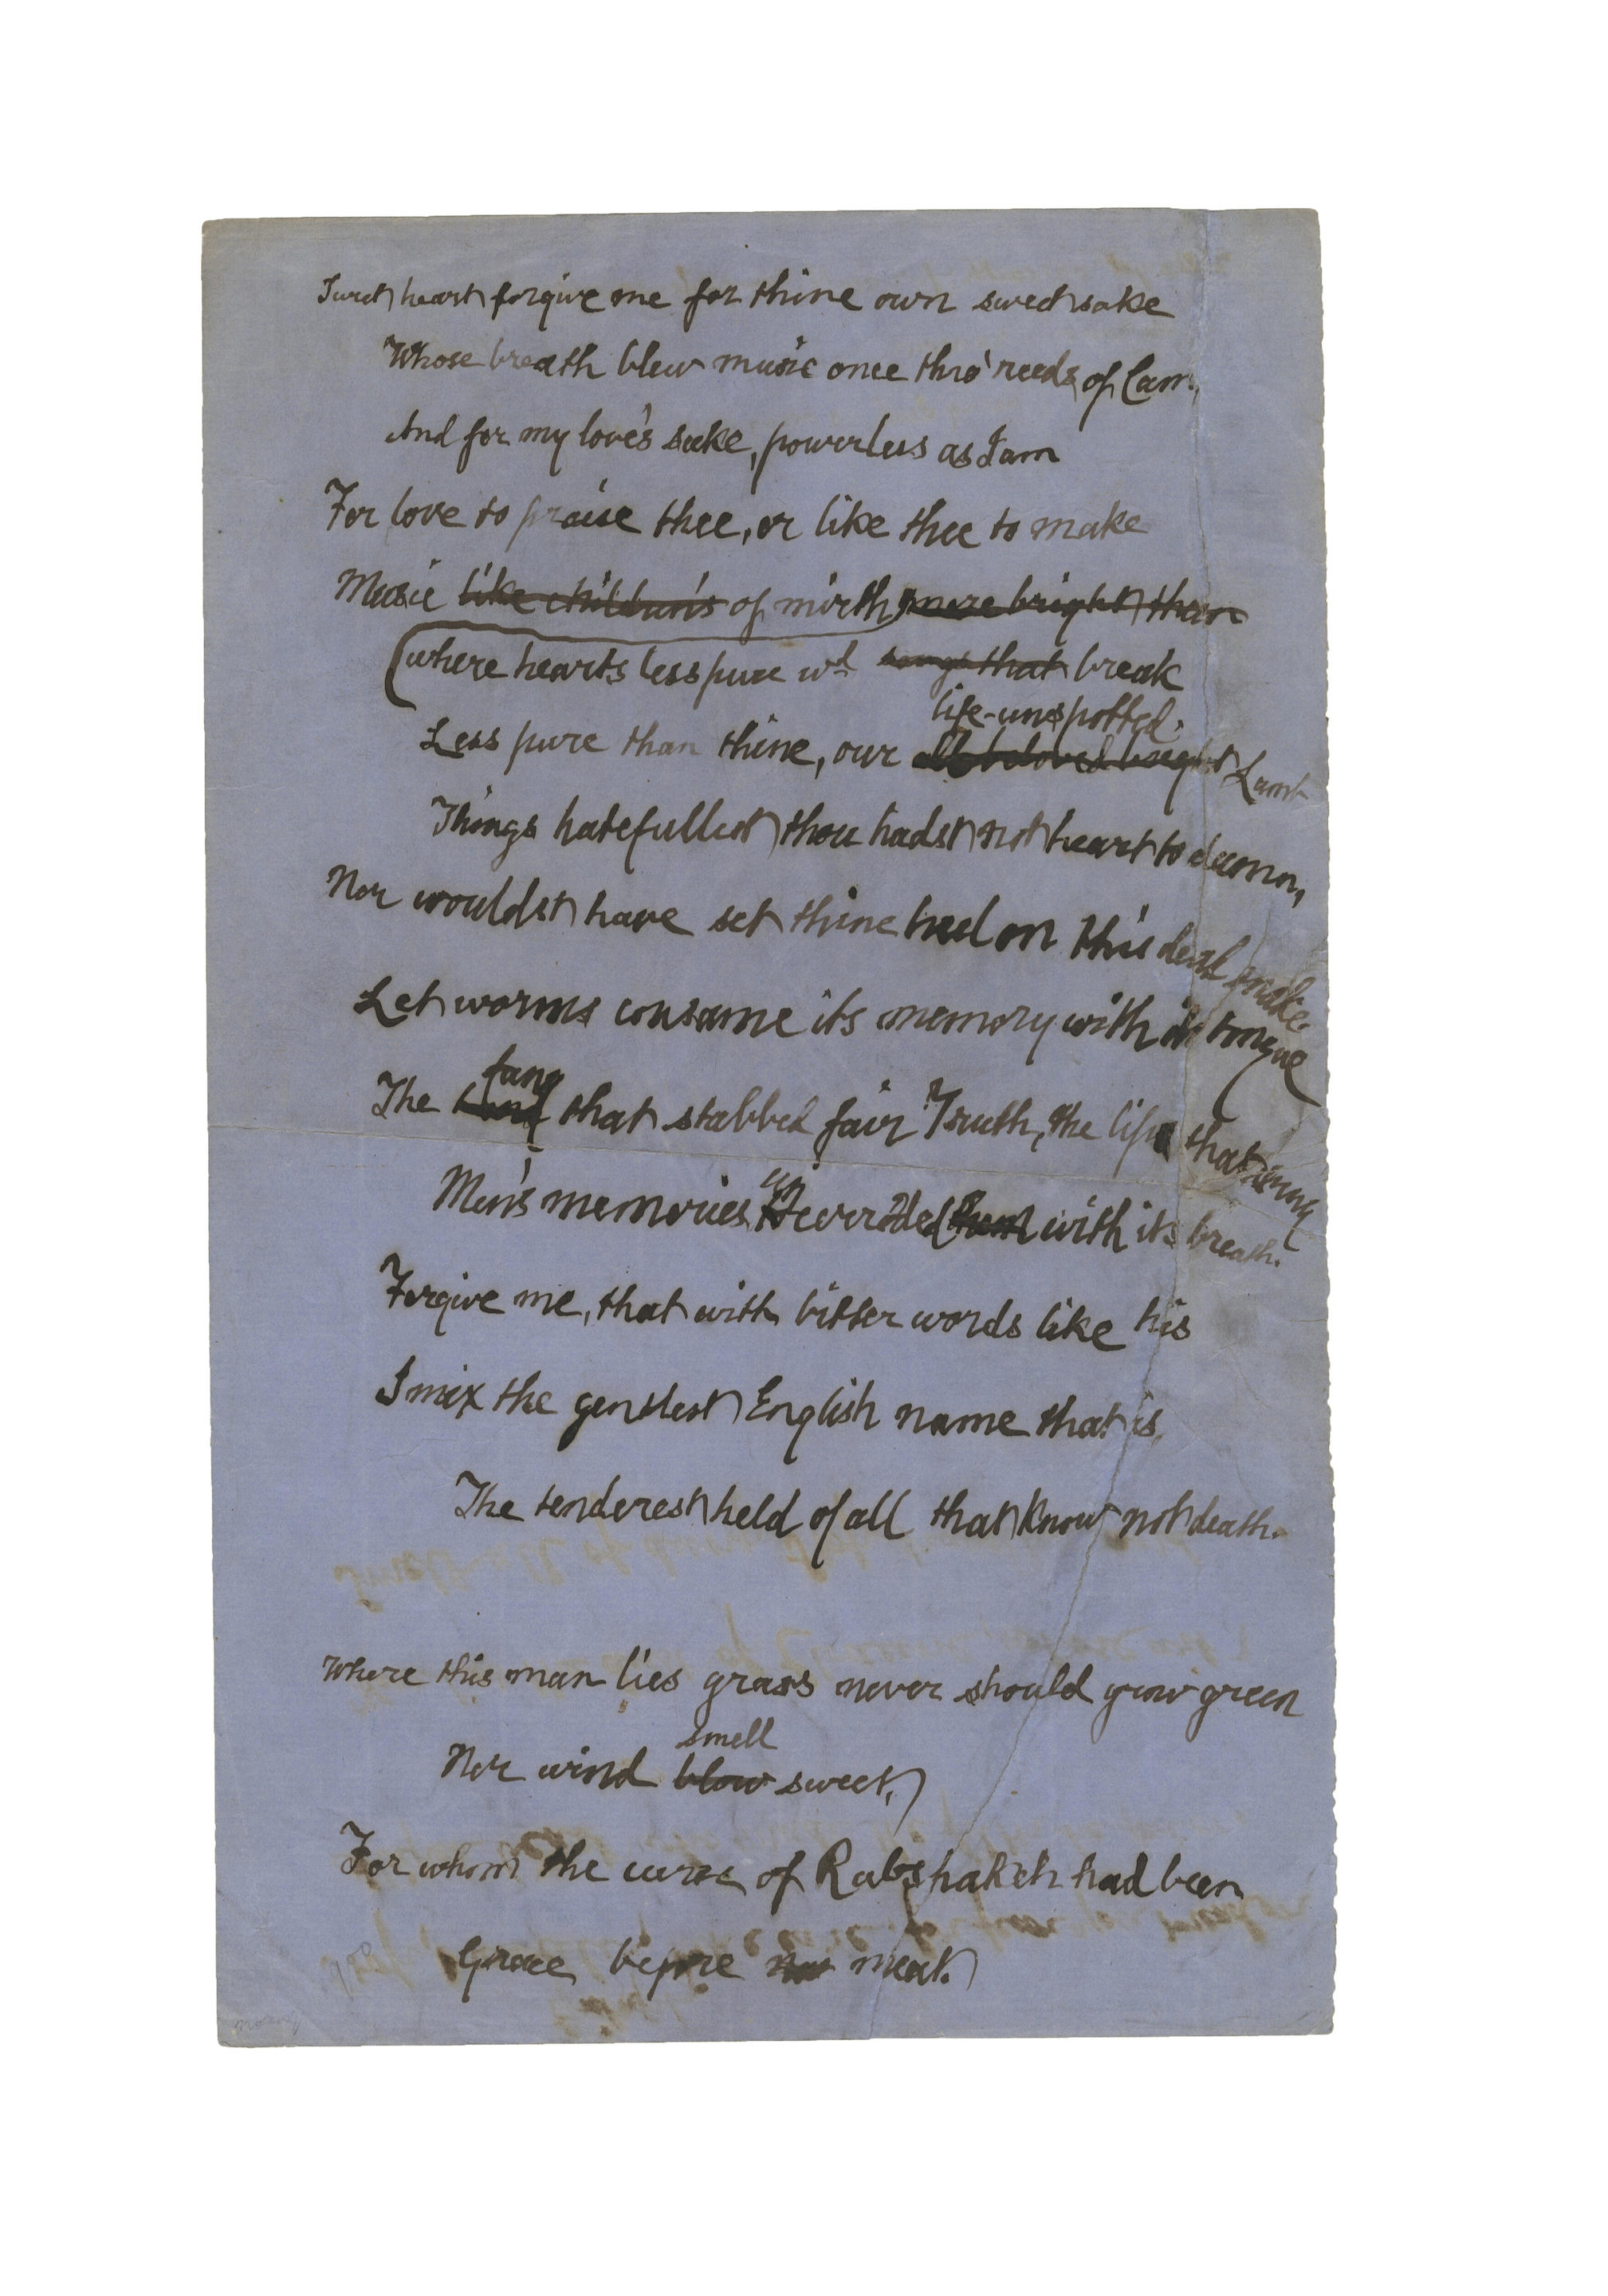 Sweet heart forgive me for thine own sweet sake
Whose breath blew music once thro' reeds of Cam,
And for my love's sake, powerless as I am
For love to praise thee, or like thee to make
Music like children's of mirth, more bright than
(where hearts less pure wd songs that break
life-unspotted
Less pure than thine, our all beloved bright Lamb
Things hatefullest thou hadst not heart to damn,
Nor wouldst have set thine heel on this dead snake.
Let worms consume its memory with its tongue
fang
The that stabbed fair Truth, the lip that stung
Men's memories uncorroded with its breath.
Forgive me, that with bitter words like his
I mix the gentlest English name that is,
The tenderest held of all that know not death.
Where this man lies grass never should grow green
smell
Nor wind blow sweet,
For whom the curse of Rabshakeh had been
Grace before meat.